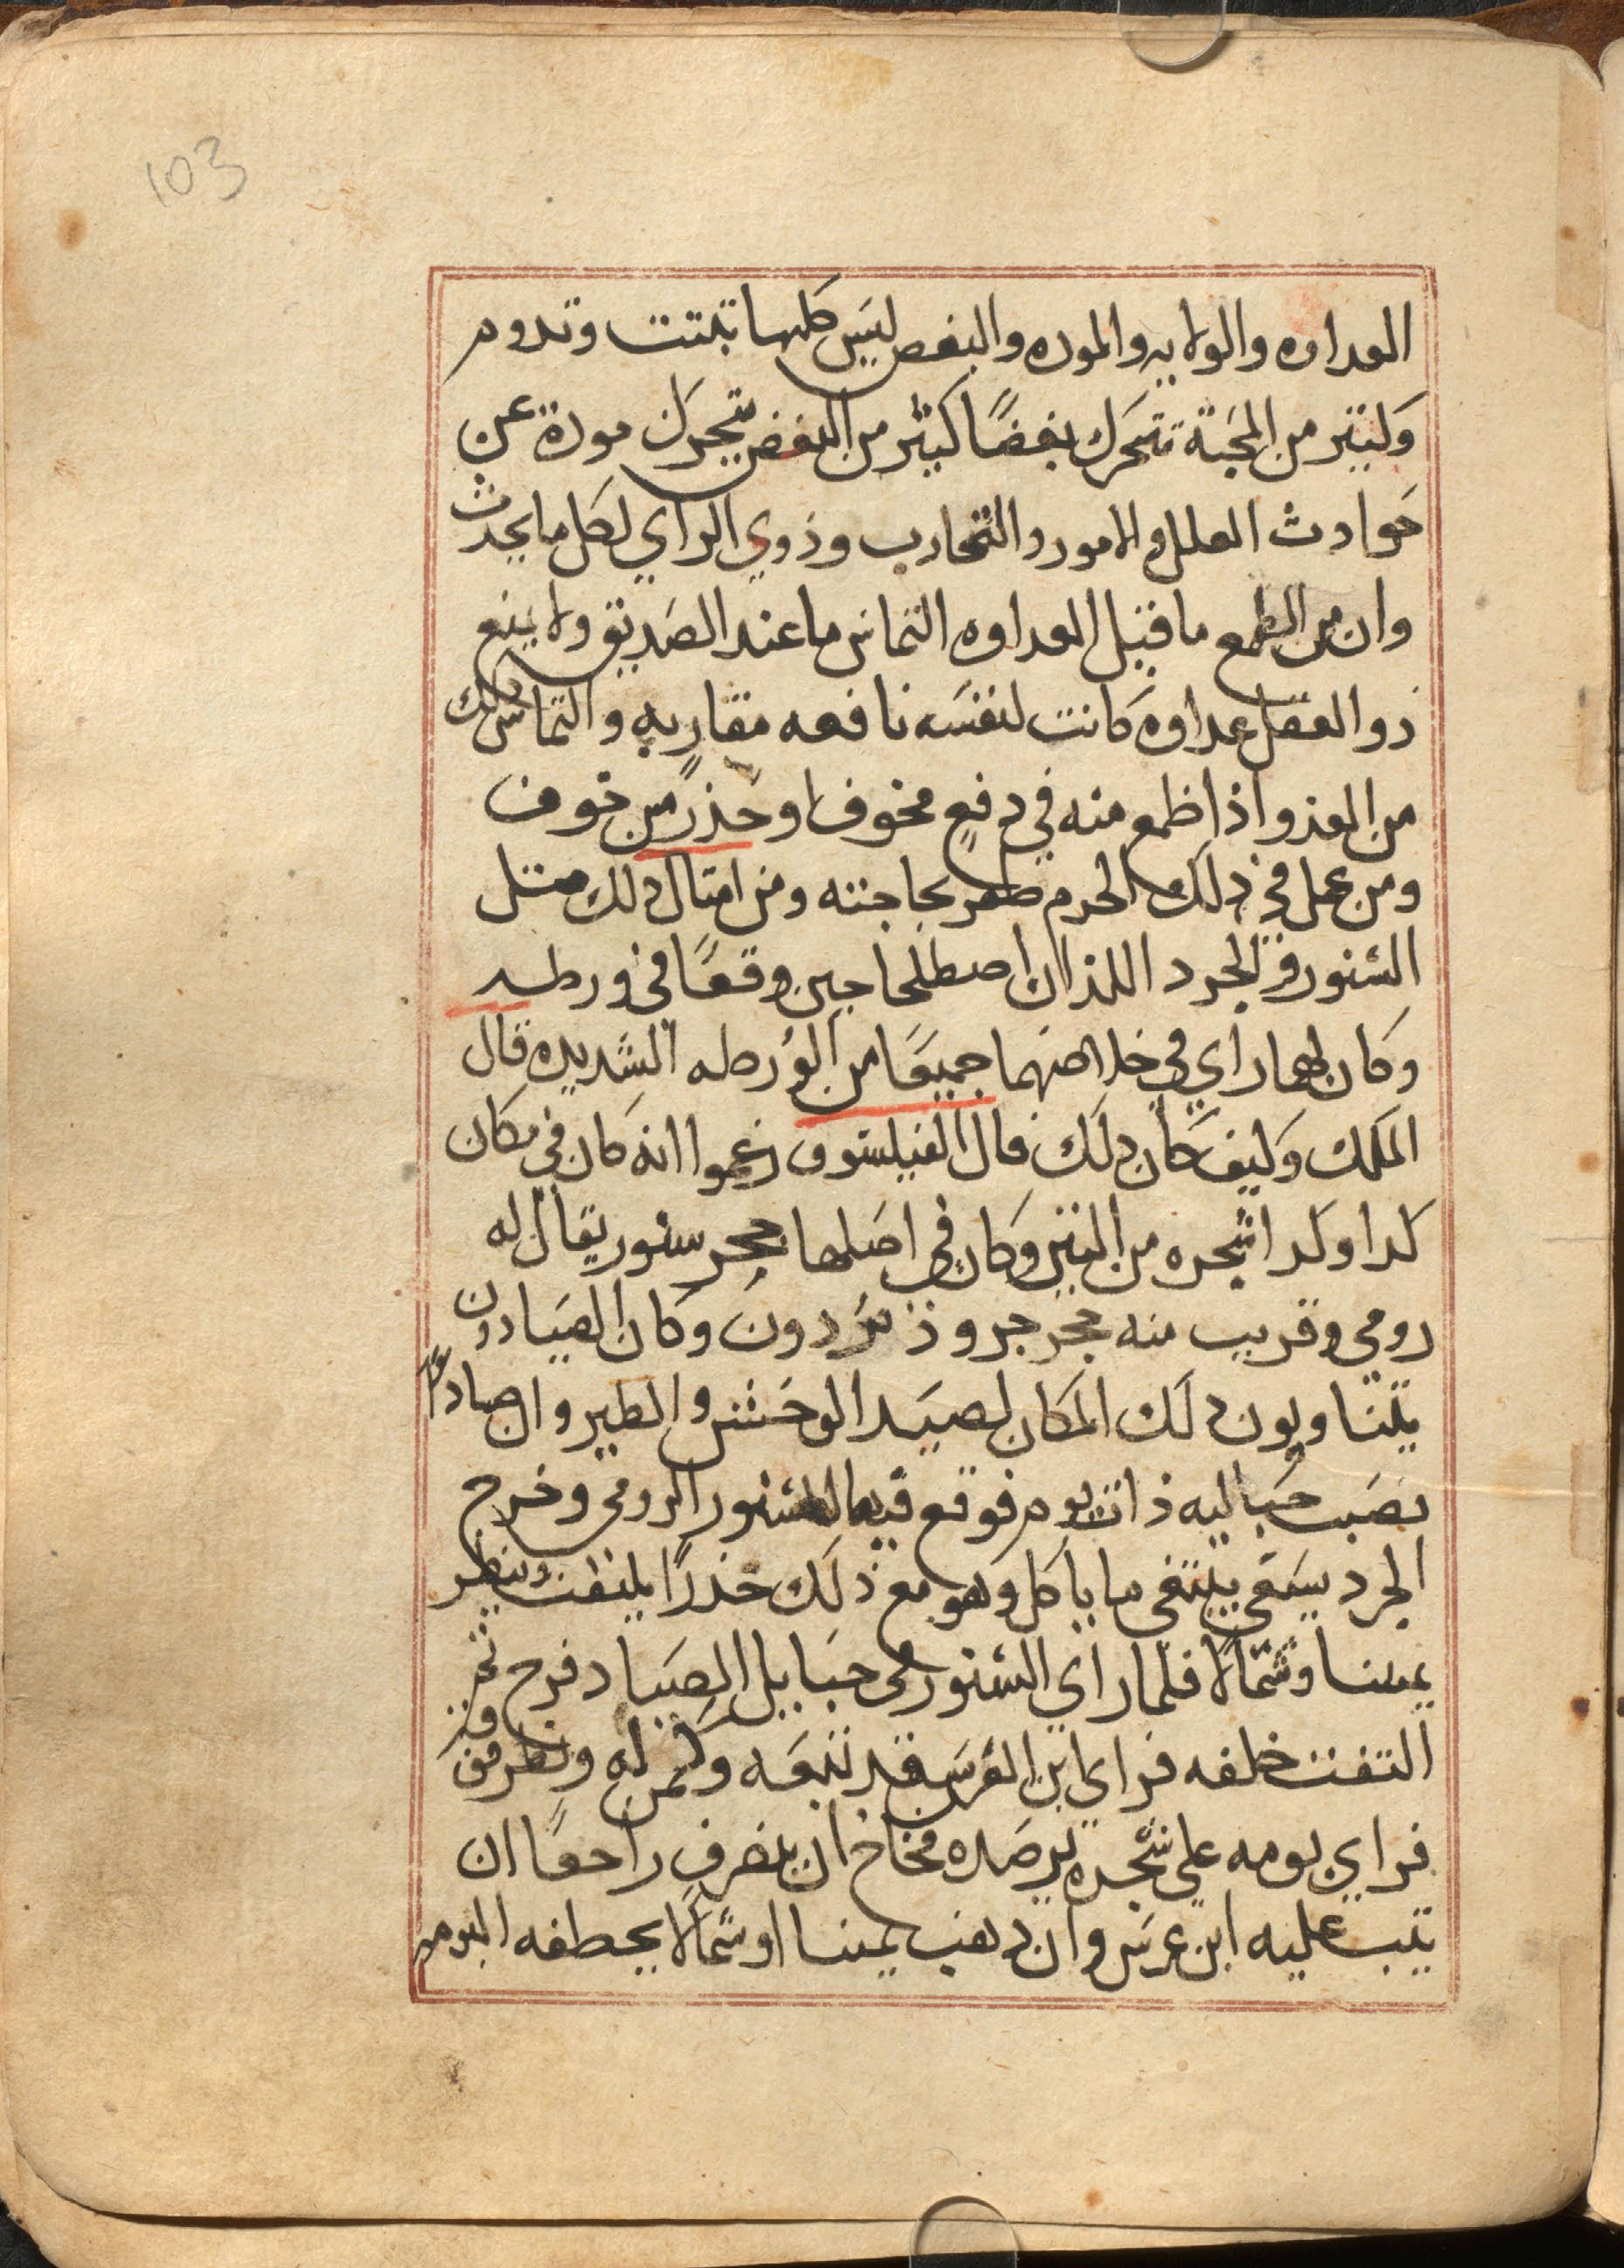 103
العداوه والولايه والموده والبغض ليس كلها تثبت وتدوم
وكثير من المحبة تتحرك بغضًا كثير من البغض يتحرك مودة عن
حوادث العلل والامور والتجارب وذوي الراي لكل ما يحدث
وان من الطمع ما قبل العداوه التماس ما عند الصديق ولا يمنع
ذو العقل عداوه كانت لنفسه نافعه مقاربه والتماس ذلك
من العدو اذا طمع منه في دفع مخوف او حذرً من خوف
ومن عمل في ذلك الحرم ظفر بحاجته ومن امثال ذلك مثل
السنور والجرد اللذان اصطلحا حين وقعا في ورطه
وكان لهما راي في خلاصهما جميعًا من الورطه الشديده قال
الملك وكيف كان ذلك قال الفيلسوف زعموا انه كان في مكان
كدا وكدا شجره من التين وكان في اصلها جحر سنور يقال له
رومي وقريب منه جحر جرو ذ دون وكان الصيادون
يتناوبون دلك المكان لصيد الوحش والطير وان صيادًا
نصب حباليه ذات يوم فوقع فيها السنور الرومي وخرج
الجرد يسعى يبتغي ما ياكل وهو مع ذلك حذرًا يلتفت وينظر
يمينا وشمالا فلما راي السنور في حبايل الصياد فرح ثم
التفت خلفه فراي ابن العرس قد تبعه وكمن له ونظر فوق
فراي بومه على شجره ترصده فخاف ان ينصرف راجعًا ان
يثب عليه ابن عرس وان دهب يمينا او شمالًا يخطفه البومه